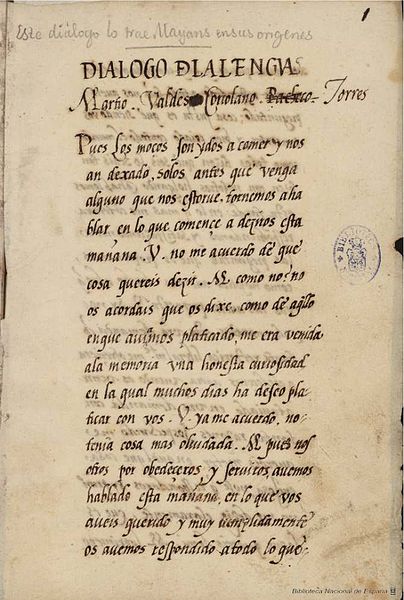 1
Este diálogo lo trae Mayans en sus orígenes
DIALOGO DLALENGVA
Martio . Valdes Coriolano . Pacheco . Torres
Pues los moços son ydos a comer y nos
an dexado, solos antes que venga
alguno que nos estorue. tornemos a ha
blar en lo que començe a deziros esta
mañana. V. no me acuerdo de que
cosa quereis dezir. M. como no? no
os acordais que os dixe, como de aq̃llo
en que auiamos platicado, me era venida
a la memoria vna honesta curiosidad
en la qual muchos dias ha deseo pla
ticar con vos. V. ya me acuerdo, no
tenia cosa mas oluidada. M. pues nos
otros por obedeceros y seruiros auemos
hablado esta mañana, en lo que vos
aueis querido y muy cumplidamente
os auemos respondido a todo lo que
BIBLIOTECA
Biblioteca Nacional de España